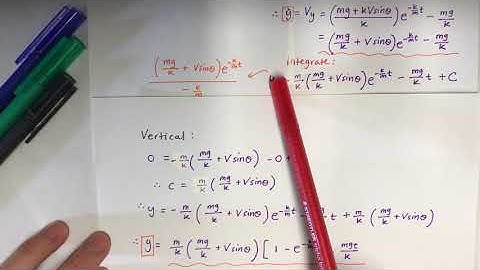 ∴ ẏ = Vy = ((mg + kVsinθ)/k) e^(-k/m t) - mg/k
= (mg/k + Vsinθ) e^(-k/m t) - mg/k
integrate:
((mg/k + Vsinθ) e^(-k/m t)) / (-k/m)
m/k (mg/k + Vsinθ) e^(-k/m t) - mg/k t + C
Vertical:
0 = -m/k (mg/k + Vsinθ) - 0 +
∴ C = m/k (mg/k + Vsinθ)
∴ y = -m/k (mg/k + Vsinθ) e^(-k/m t) t + m/k (mg/k + Vsinθ)
∴ y = m/k (mg/k + Vsinθ) [1 - e^(-k/m mgt/k